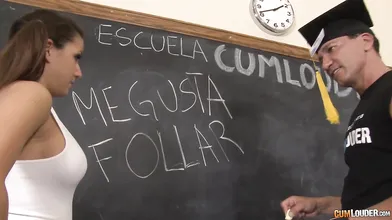 ESCUELA CUMLOUDER
ME GUSTA
FOLLAR
LOUDER
CUMLOUDER
CUMLOUDER.COM